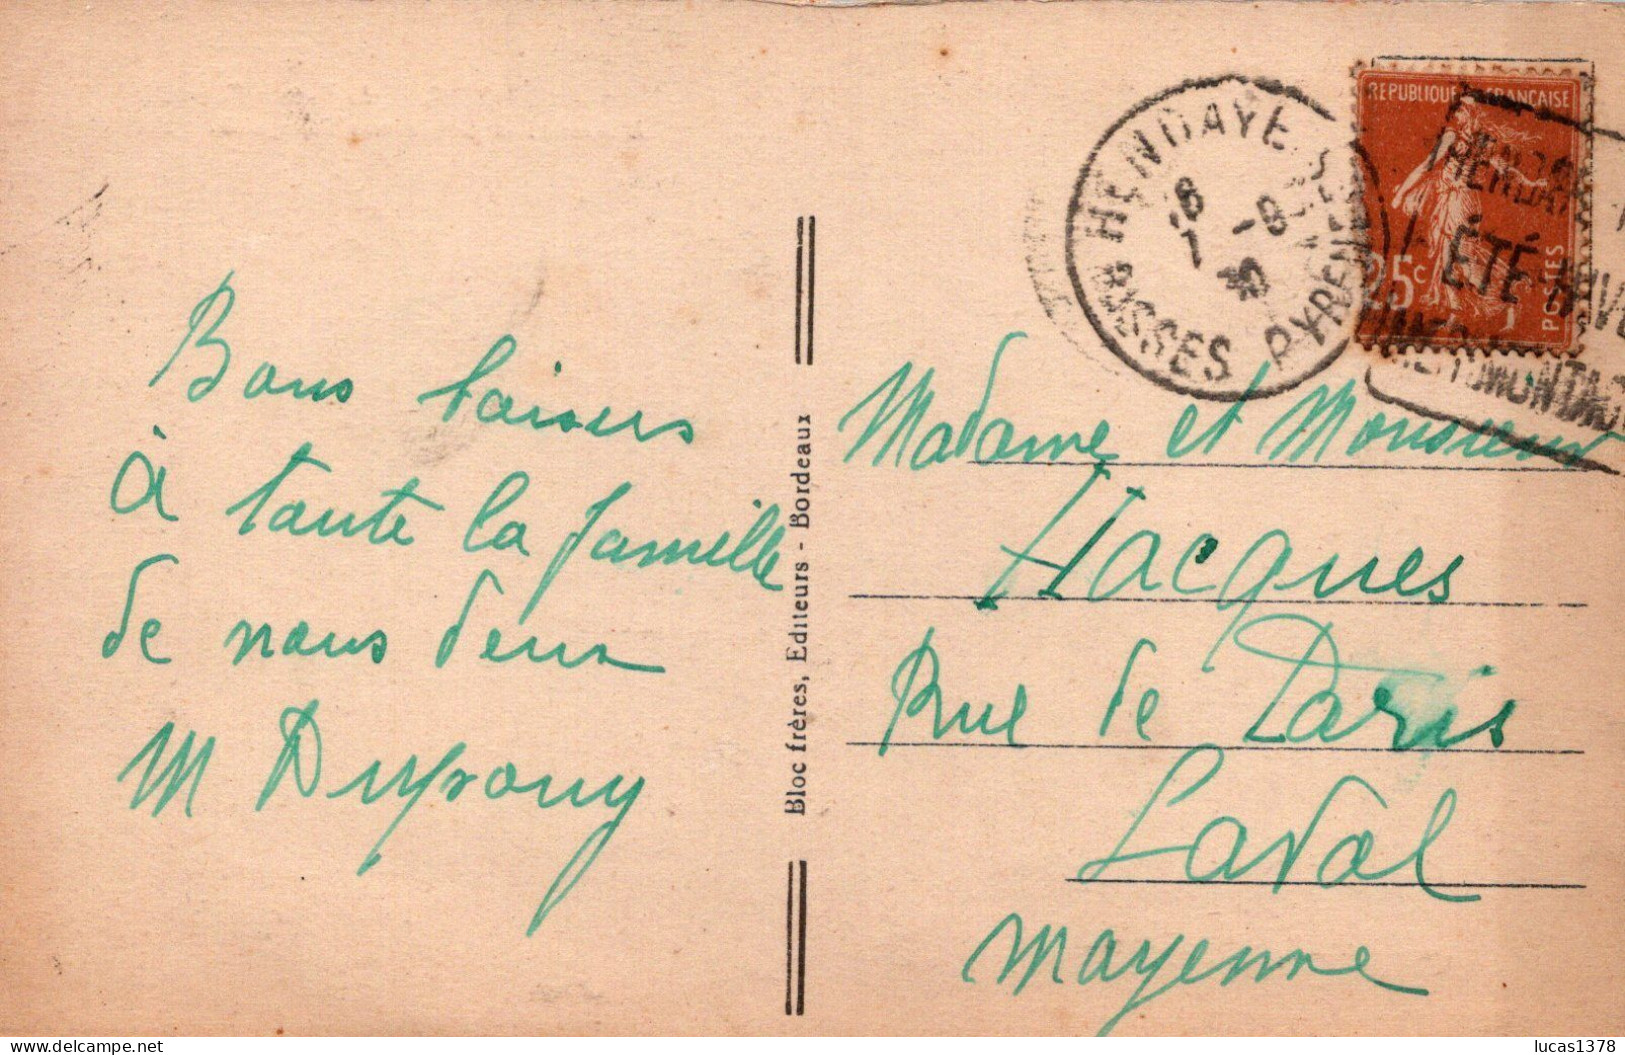 Bons baisers
à toute la famille
de nous deux
M Dupouy
Bloc frères, Editeurs - Bordeaux
HENDAYE
BASSES PYRENEES
REPUBLIQUE FRANÇAISE
25c
POSTES
HENDAYE
ÉTÉ HIVE
MER MONTAG
Madame et Monsieur
Hacques
Rue de Paris
Laval
Mayenne
www.delcampe.net
lucas1378